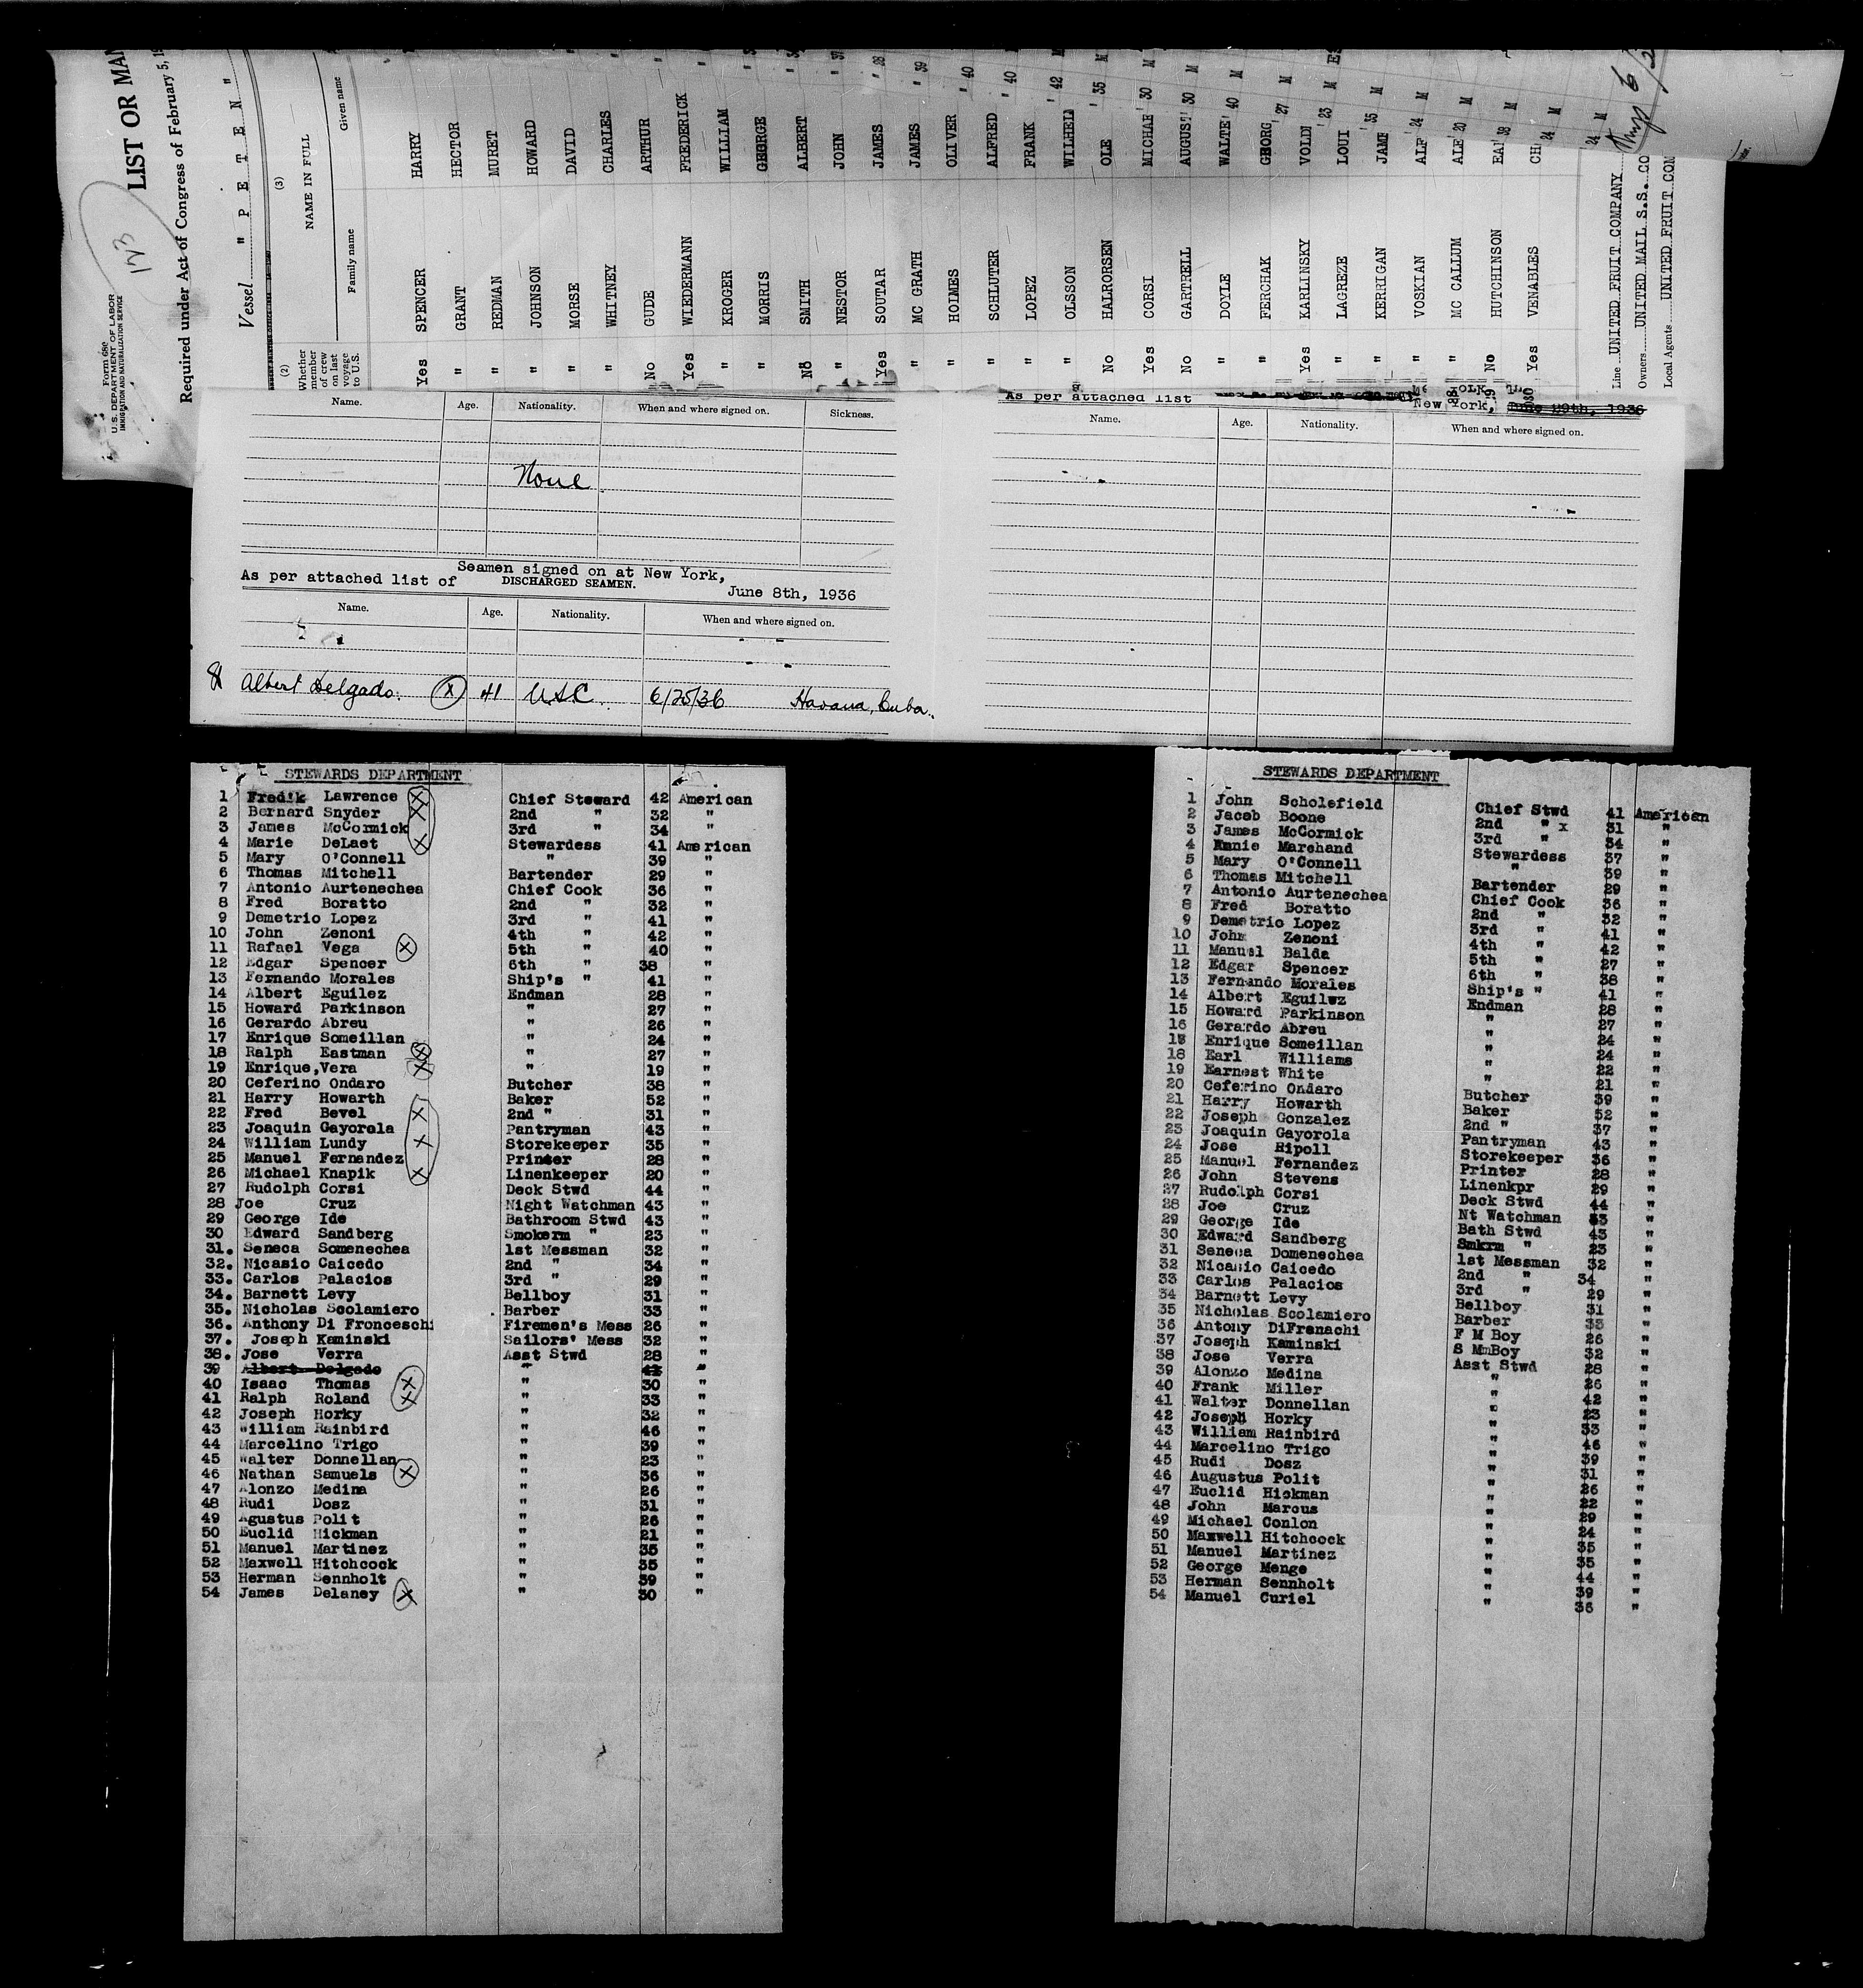 Form 689
U. S. DEPARTMENT OF LABOR
IMMIGRATION AND NATURALIZATION SERVICE
123
LIST OR MAN
Required under Act of Congress of February 5, 19
Vessel " P E T E N "
(2) (3)
Whether member of crew on last voyage to U.S. NAME IN FULL
Family name Given name
Yes SPENCER HARRY
" GRANT HECTOR
" REDMAN MURET
" JOHNSON HOWARD
" MORSE DAVID "
" WHITNEY CHARLES
No GUDE ARTHUR "
Yes WIEDERMANN FREDERICK
" KROGER WILLIAM "
" MORRIS GEORGE "
No SMITH ALBERT "
" NESTOR JOHN " 37
Yes SOUTAR JAMES " 28
" MC GRATH JAMES " 39
" HOLMES OLIVER " 40
" SCHLUTER ALFRED " 40
" LOPEZ FRANK
" OLSSON WILHEL " 42 M
No HALRORSEN OLE " 35 M
Yes CORSI MICHAE 30 M
No GARTRELL AUGUST 30 M
" DOYLE WALTE 40 M
" FERCHAK GEORG 27 M
Yes KARLINSKY VOLDI 23 M
" LAGREZE LOUI
" KERRIGAN JAME 35 M
" VOSKIAN ALF 24 M
" MC CALLUM ALE 20 M
No HUTCHINSON EA 38 M
Yes VENABLES CH 24 M
24 M
Line UNITED FRUIT COMPANY
Owners UNITED MAIL S.S. CO
Local Agents UNITED FRUIT COM
Name. Age. Nationality. When and where signed on. Sickness.
None
Seamen signed on at New York,
As per attached list of DISCHARGED SEAMEN. June 8th, 1936
Name. Age. Nationality. When and where signed on.
Albert Delgado. X 41 U.S.C. 6/25/36 Havana, Cuba.
As per attached list New York, June 29th, 1936
Name. Age. Nationality. When and where signed on.
STEWARDS DEPARTMENT
1 Fredik Lawrence X Chief Steward 42 American
2 Bernard Snyder X 2nd " 32 "
3 James McCormick 3rd " 34 "
4 Marie DeLaet X Stewardess 41 American
5 Mary O'Connell " 39 "
6 Thomas Mitchell Bartender 29 "
7 Antonio Aurtenechea Chief Cook 36 "
8 Fred Boratto 2nd " 32 "
9 Demetrio Lopez 3rd " 41 "
10 John Zenoni 4th " 42 "
11 Rafael Vega X 5th " 40 "
12 Edgar Spencer 6th " 38 "
13 Fernando Morales Ship's " 41 "
14 Albert Eguilez Endman 28 "
15 Howard Parkinson " 27 "
16 Gerardo Abreu " 26 "
17 Enrique Someillan " 24 "
18 Ralph Eastman X " 27 "
19 Enrique,Vera X " 19 "
20 Ceferino Ondaro Butcher 38 "
21 Harry Howarth Baker 52 "
22 Fred Bevel X 2nd " 31 "
23 Joaquin Gayorola Pantryman 43 "
24 William Lundy X Storekeeper 35 "
25 Manuel Fernandez Printer 28 "
26 Michael Knapik X Linenkeeper 20 "
27 Rudolph Corsi Deck Stwd 44 "
28 Joe Cruz Night Watchman 43 "
29 George Ide Bathroom Stwd 43 "
30 Edward Sandberg Smokerm " 23 "
31. Seneca Somenechea 1st Messman 32 "
32. Nicasio Caicedo 2nd " 34 "
33. Carlos Palacios 3rd " 29 "
34. Barnett Levy Bellboy 31 "
35. Nicholas Scolamiero Barber 33 "
36. Anthony Di Fronceschi Firemen's Mess 26 "
37. Joseph Kaminski Sailors' Mess 32 "
38. Jose Verra Asst Stwd 28 "
39 Albert Delgado " 41 "
40 Isaac Thomas X " 30 "
41 Ralph Roland X " 33 "
42 Joseph Horky " 32 "
43 William Rainbird " 46 "
44 Marcelino Trigo " 39 "
45 Walter Donnellan " 23 "
46 Nathan Samuels X " 36 "
47 Alonzo Medina " 26 "
48 Rudi Dosz " 31 "
49 Agustus Polit " 26 "
50 Euclid Hickman " 21 "
51 Manuel Martinez " 35 "
52 Maxwell Hitchcock " 35 "
53 Herman Sennholt " 39 "
54 James Delaney X " 30 "
STEWARDS DEPARTMENT
1 John Scholefield Chief Stwd 41 American
2 Jacob Boone 2nd " x 31 "
3 James McCormick 3rd " 34 "
4 Annie Marchand Stewardess 37 "
5 Mary O'Connell " 39 "
6 Thomas Mitchell Bartender 29 "
7 Antonio Aurtenechea Chief Cook 36 "
8 Fred Boratto 2nd " 32 "
9 Demetrio Lopez 3rd " 41 "
10 John Zenoni 4th " 42 "
11 Manuel Balda 5th " 27 "
12 Edgar Spencer 6th " 38 "
13 Fernando Morales Ship's " 41 "
14 Albert Eguilez Endman 28 "
15 Howard Parkinson " 27 "
16 Gerardo Abreu " 24 "
17 Enrique Someillan " 24 "
18 Earl Williams " 22 "
19 Earnest White " 21 "
20 Ceferino Ondaro Butcher 39 "
21 Harry Howarth Baker 52 "
22 Joseph Gonzalez 2nd " 37 "
23 Joaquin Gayorola Pantryman 43 "
24 Jose Ripoll Storekeeper 36 "
25 Manuel Fernandez Printer 28 "
26 John Stevens Linenkpr 29 "
27 Rudolph Corsi Deck Stwd 44 "
28 Joe Cruz Nt Watchman 43 "
29 George Ide Bath Stwd 43 "
30 Edward Sandberg Smkrm " 23 "
31 Seneca Domenechea 1st Messman 32 "
32 Nicasio Caicedo 2nd " 34 "
33 Carlos Palacios 3rd " 29 "
34 Barnett Levy Bellboy 31 "
35 Nicholas Scolamiero Barber 33 "
36 Antony DiFrenachi F M Boy 26 "
37 Joseph Kaminski S MmBoy 32 "
38 Jose Verra Asst Stwd 28 "
39 Alonzo Medina " 26 "
40 Frank Miller " 42 "
41 Walter Donnellan " 23 "
42 Joseph Horky " 33 "
43 William Rainbird " 46 "
44 Marcelino Trigo " 39 "
45 Rudi Dosz " 31 "
46 Augustus Polit " 26 "
47 Euclid Hickman " 22 "
48 John Marcus " 29 "
49 Michael Conlon " 24 "
50 Maxwell Hitchcock " 35 "
51 Manuel Martinez " 35 "
52 George Menge " 44 "
53 Herman Sennholt " 39 "
54 Manuel Curiel " 36 "